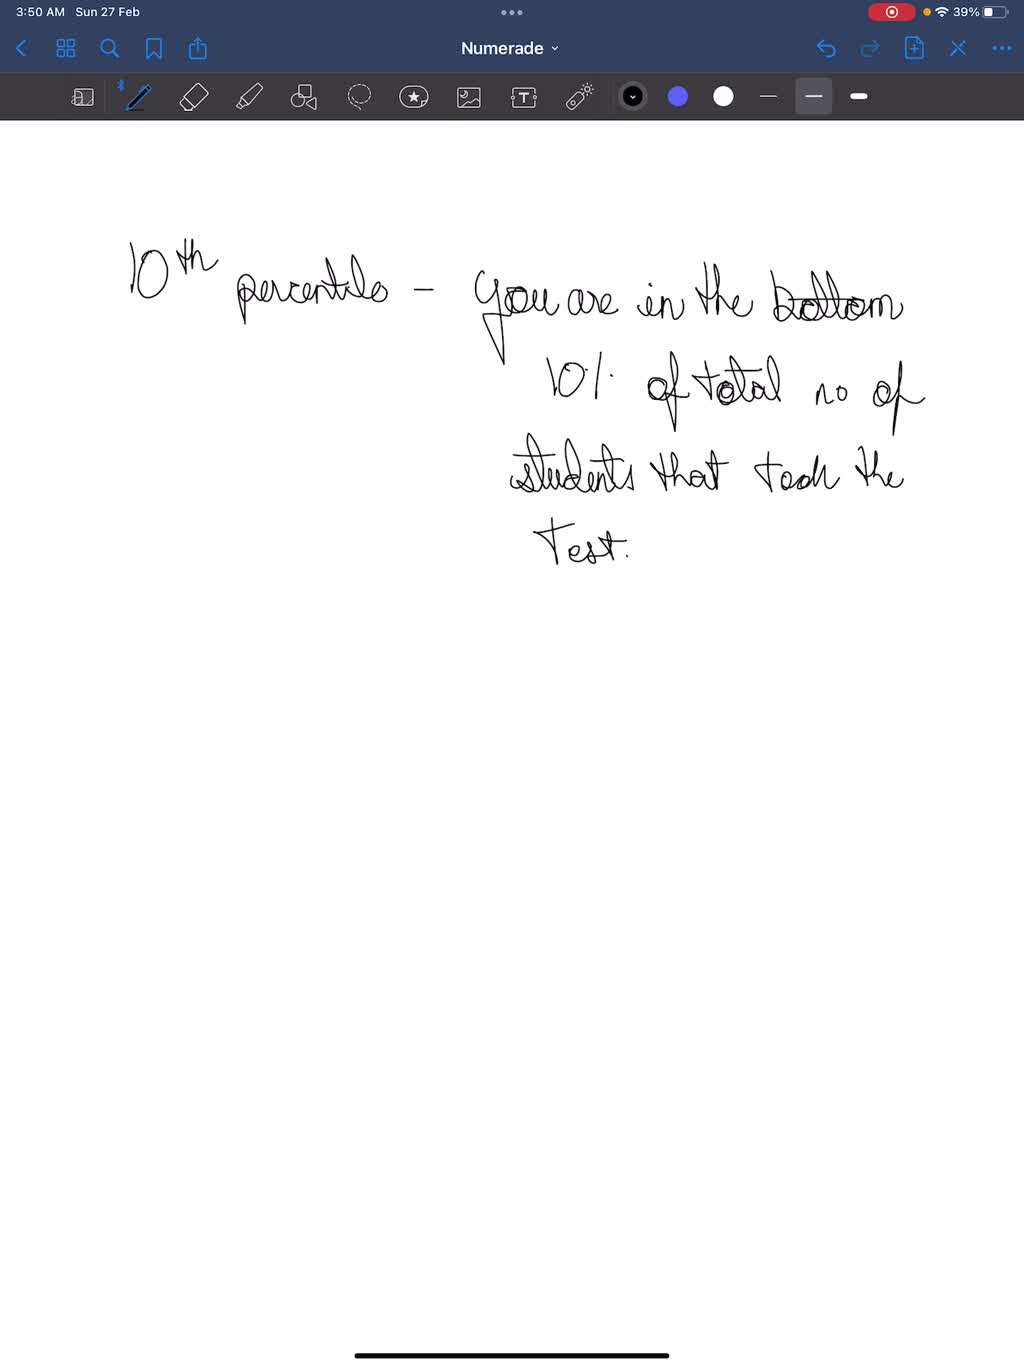 3:50 AM Sun 27 Feb
39%
Numerade
T
10th percentile - you are in the bottom
10% of total no of
students that took the
Test.